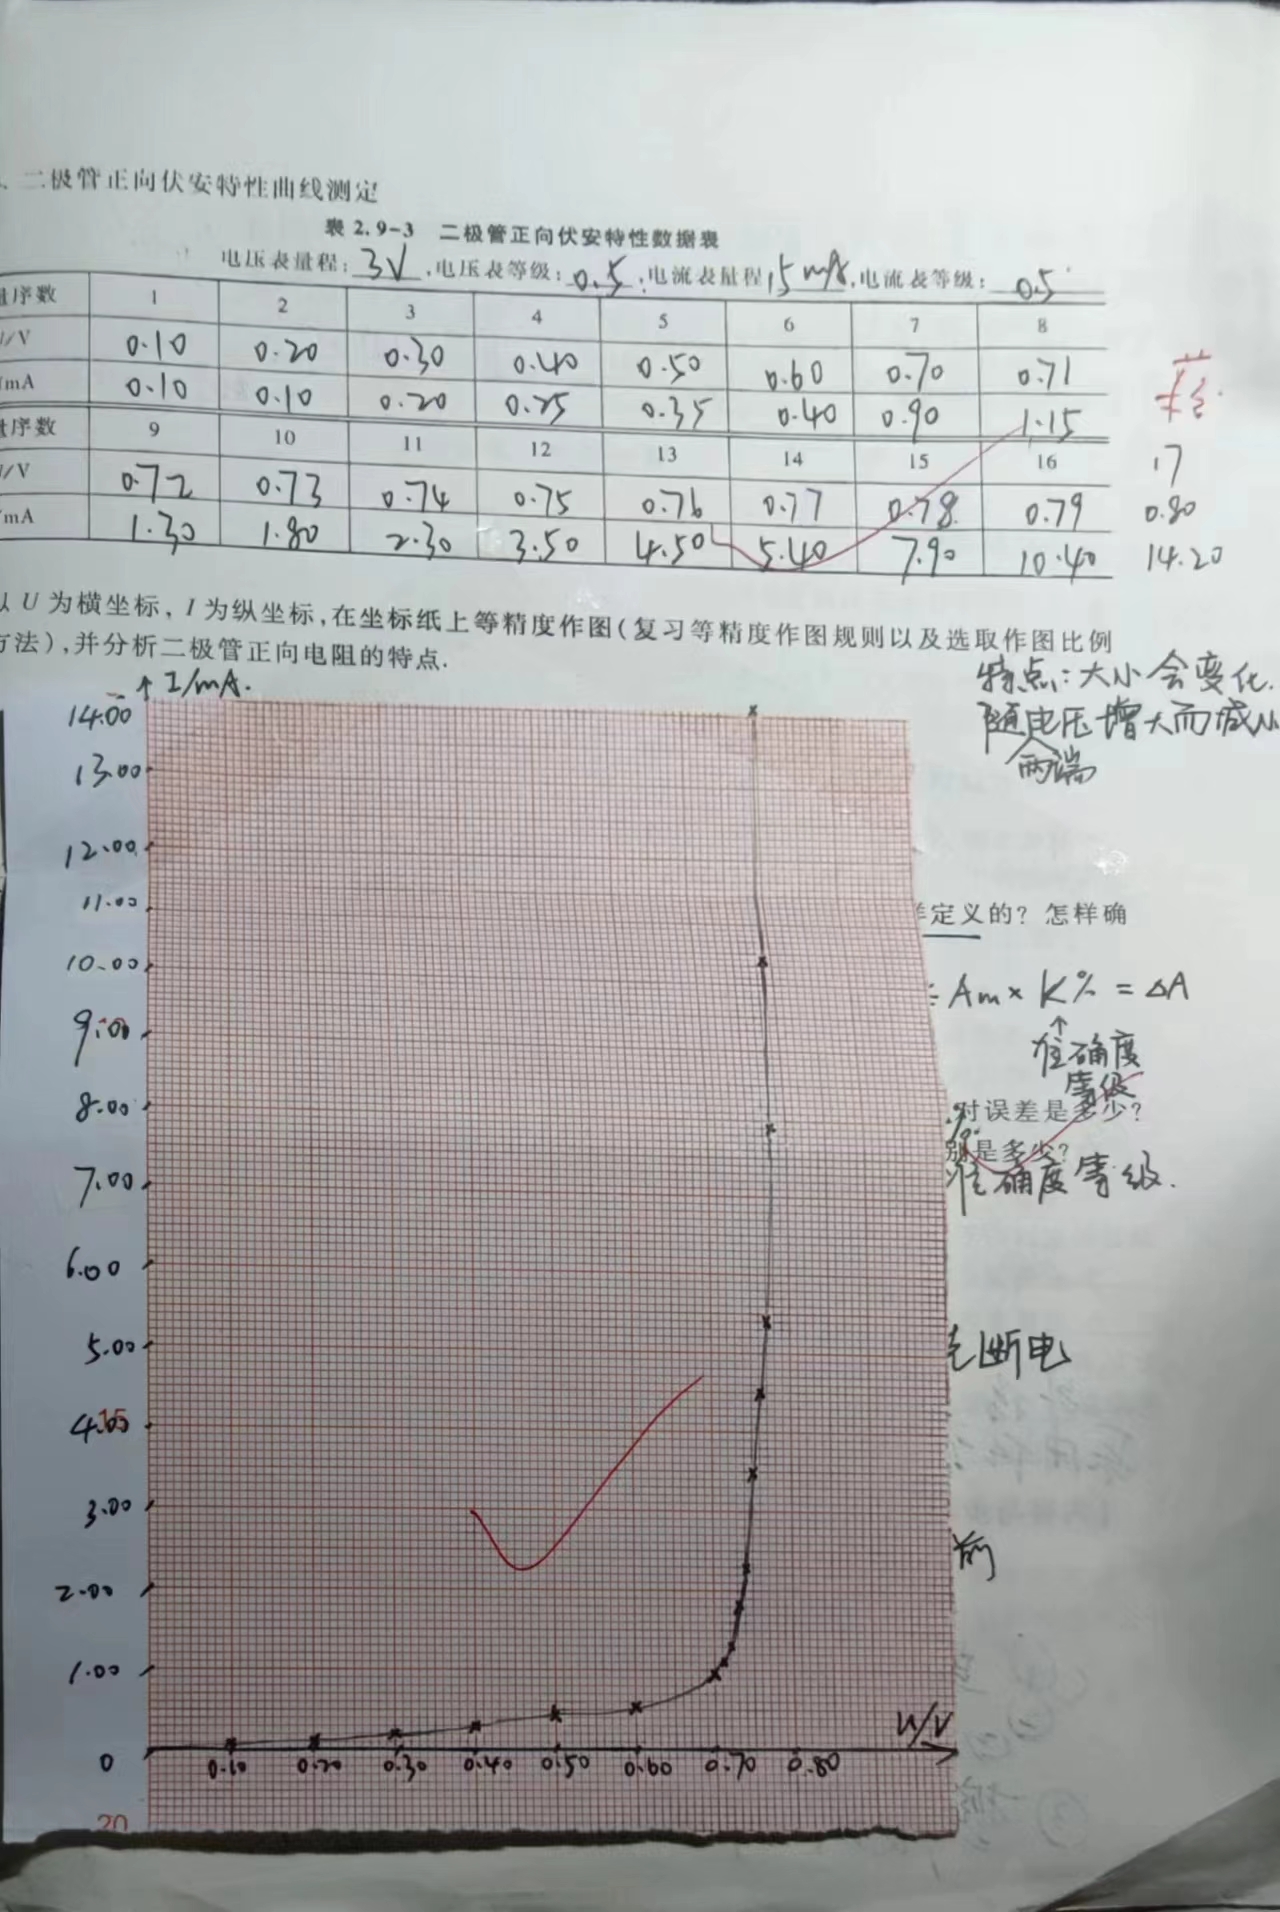 二极管正向伏安特性曲线测定
表 2.9-3 二极管正向伏安特性数据表
电压表量程: 3V ,电压表等级: 0.5 ,电流表量程 15mA,电流表等级: 0.5
量序数 1 2 3 4 5 6 7 8
U/V 0.10 0.20 0.30 0.40 0.50 0.60 0.70 0.71
/mA 0.10 0.10 0.20 0.25 0.35 0.40 0.90 1.15
量序数 9 10 11 12 13 14 15 16 17
U/V 0.72 0.73 0.74 0.75 0.76 0.77 0.78 0.79 0.80
/mA 1.30 1.80 2.30 3.50 4.50 5.40 7.90 10.40 14.20
以 U 为横坐标, I 为纵坐标,在坐标纸上等精度作图(复习等精度作图规则以及选取作图比例
方法),并分析二极管正向电阻的特点.
特点:大小会变化.
随两端电压增大而减小
I/mA.
14.00
13.00
12.00
11.00
10.00
9.00
8.00
7.00
6.00
5.00
4.00
3.00
2.00
1.00
0 0.10 0.20 0.30 0.40 0.50 0.60 0.70 0.80
U/V
20
15
样定义的? 怎样确
= Am × K% = ΔA
↑
准确度
等级
对误差是多少?
别是多少?
准确度等级.
断电
前